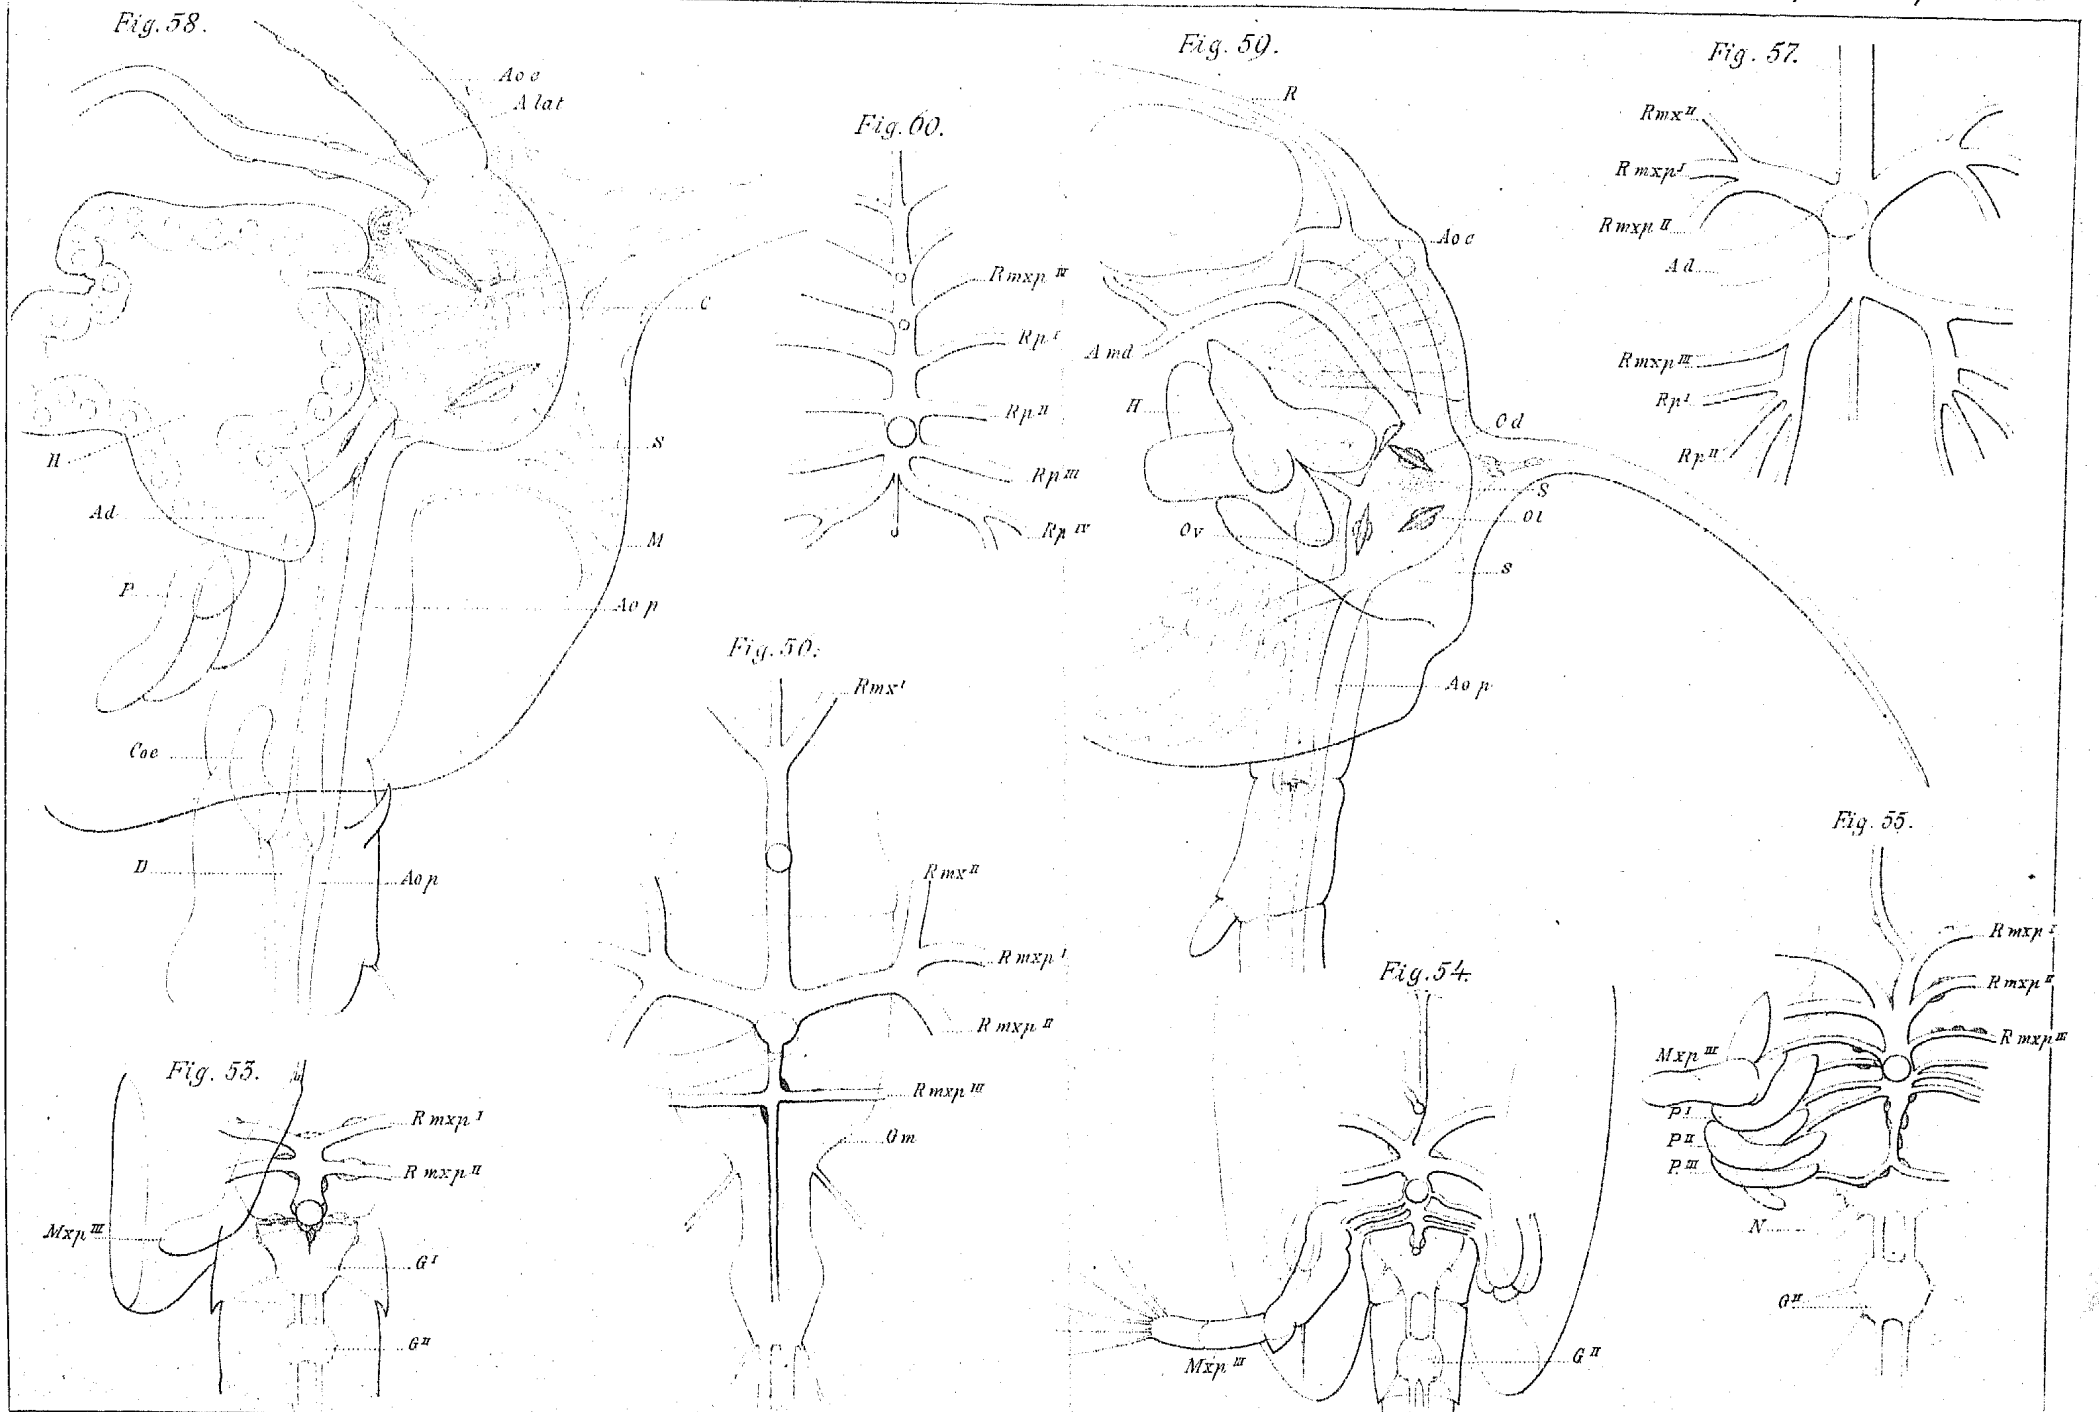 Fig. 58.
Ao c
A lat
C
S
H
Ad
M
P
Ao p
Coe
D
Ao p
Fig. 60.
Rmxp IV
Rp I
Rp II
Rp III
Rp IV
Fig. 59.
R
Ao c
A md
H
Od
S
Ol
Ov
s
Ao p
Fig. 57.
Rmx II
Rmxp I
Rmxp II
Ad
Rmxp III
Rp I
Rp II
Fig. 56.
Rmx I
Rmx II
Rmxp I
Rmxp II
Rmxp III
Gm
Fig. 53.
Rmxp I
Rmxp II
Mxp III
G I
G II
Fig. 54.
Mxp III
G II
Fig. 55.
Rmxp I
Rmxp II
Rmxp III
Mxp III
P I
P II
P III
N
G II